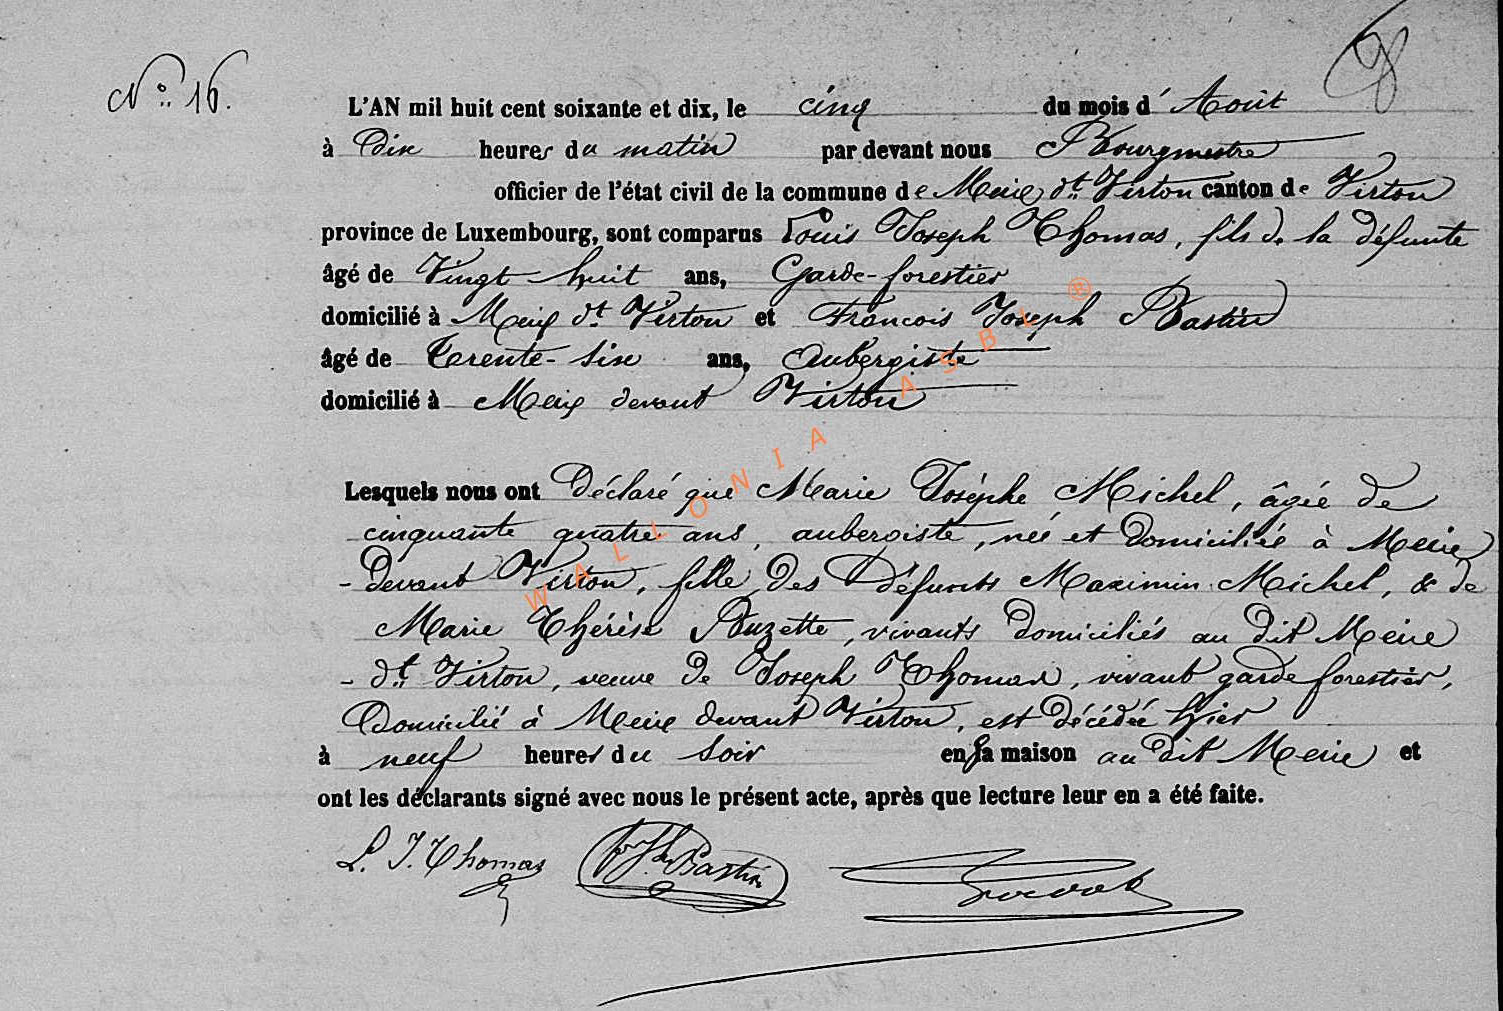 N° 16.
L'AN mil huit cent soixante et dix, le cinq du mois d' Août
à Dix heures du matin par devant nous Bourgmestre
officier de l'état civil de la commune de Meix dt Virton canton de Virton
province de Luxembourg, sont comparus Louis Joseph Thomas, fils de la défunte
âgé de Vingt huit ans, Garde-forestier
domicilié à Meix dt Virton et Francois Joseph Bastin
âgé de Trente-six ans, Aubergiste
domicilié à Meix devant Virton
Lesquels nous ont Déclaré que Marie Joséphe Michel, âgée de
cinquante quatre ans, aubergiste, née et domiciliée à Meix
- devant Virton, fille des Défunts Maximin Michel, & de
Marie Thérèse Buzette, vivants domiciliés au dit Meix
- dt Virton, veuve de Joseph Thomas, vivant garde forestier,
Domicilié à Meix devant Virton, est décédée hier
à neuf heures du soir en sa maison au dit Meix et
ont les déclarants signé avec nous le présent acte, après que lecture leur en a été faite.
L. J. Thomas Bastin
WALLONIA ASBL ®